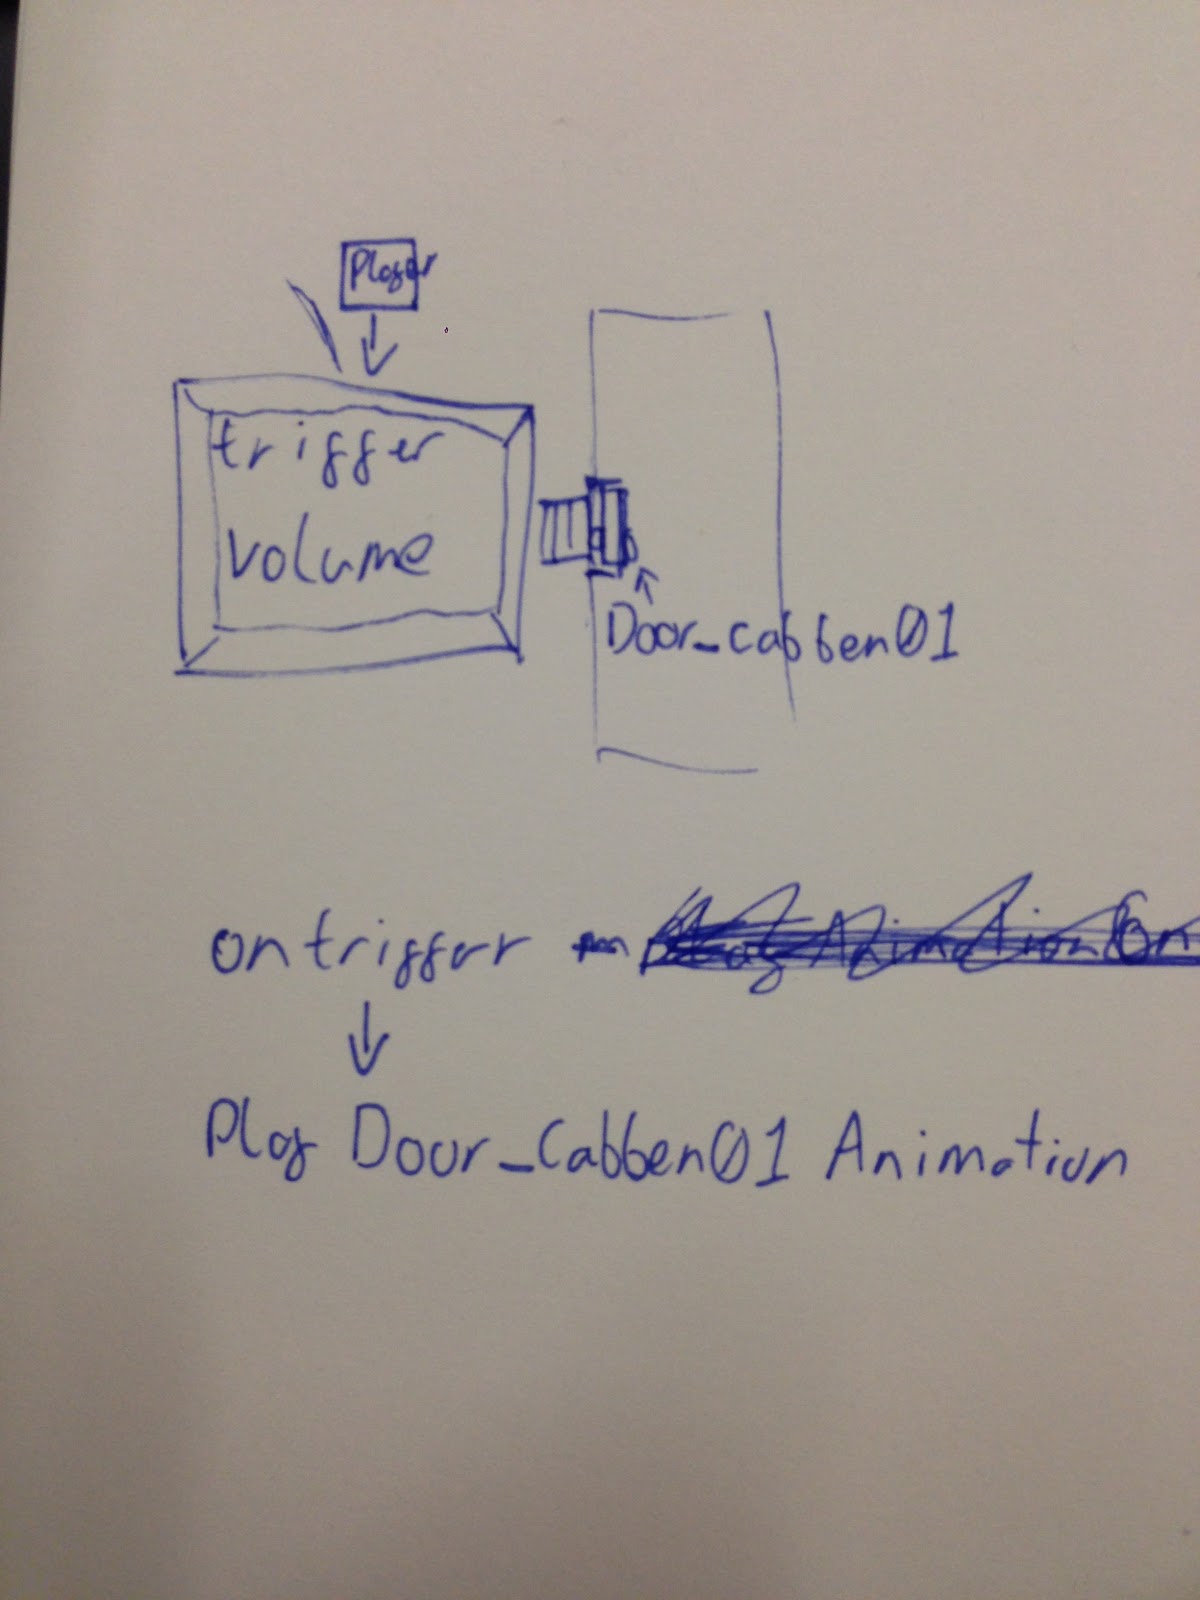 Player
trigger
volume
Door_cabben01
on trigger
Play Door_Cabben01 Animation